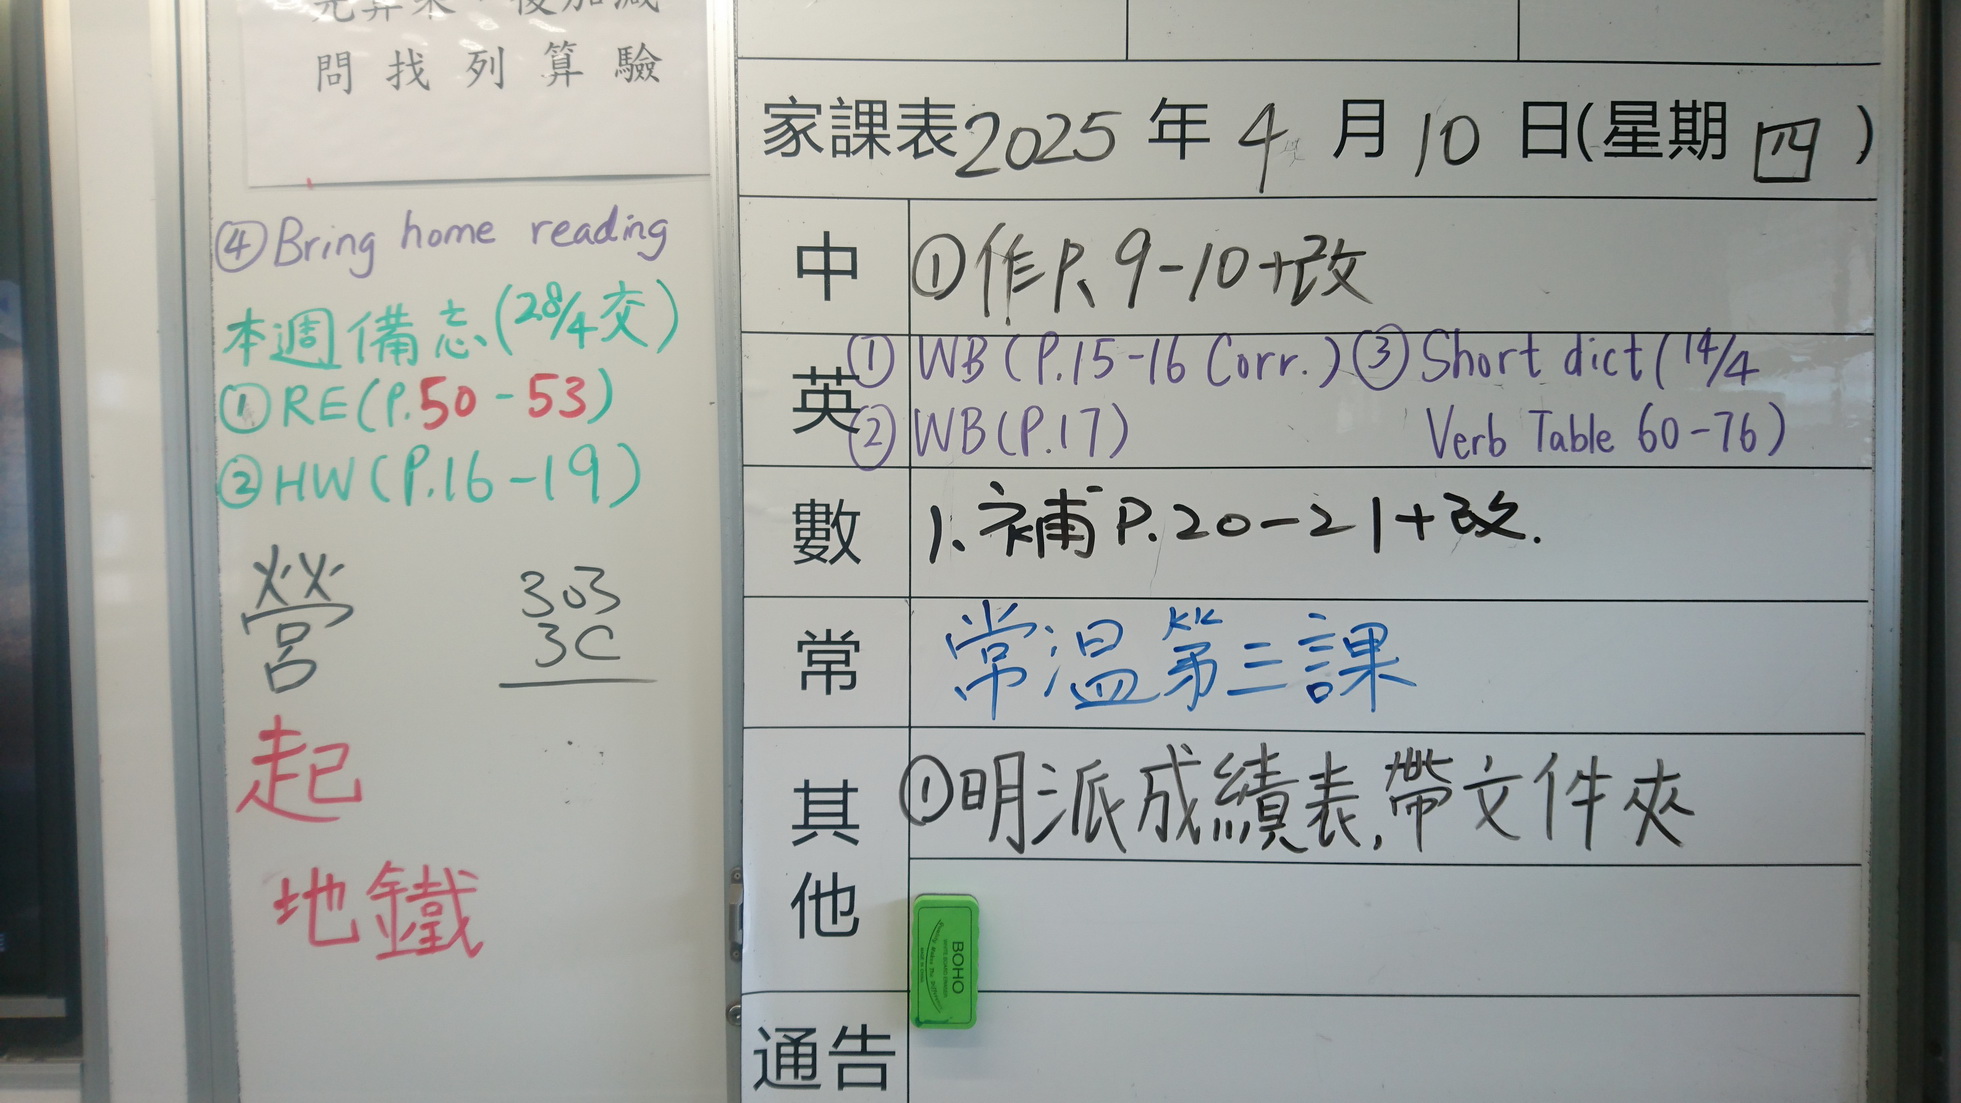 問找列算驗
④Bring home reading
本週備忘(28/4交)
①RE(P.50-53)
②HW(P.16-19)
營
303
3C
起
地鐵
家課表2025年4月10日(星期四)
中 ①作P.9-10+改
英 ①WB(P.15-16 Corr.) ③Short dict(14/4
②WB(P.17) Verb Table 60-76)
數 1.補P.20-21+改.
常 常温第三課
其他 ①明派成績表,帶文件夾
BOHO
通告